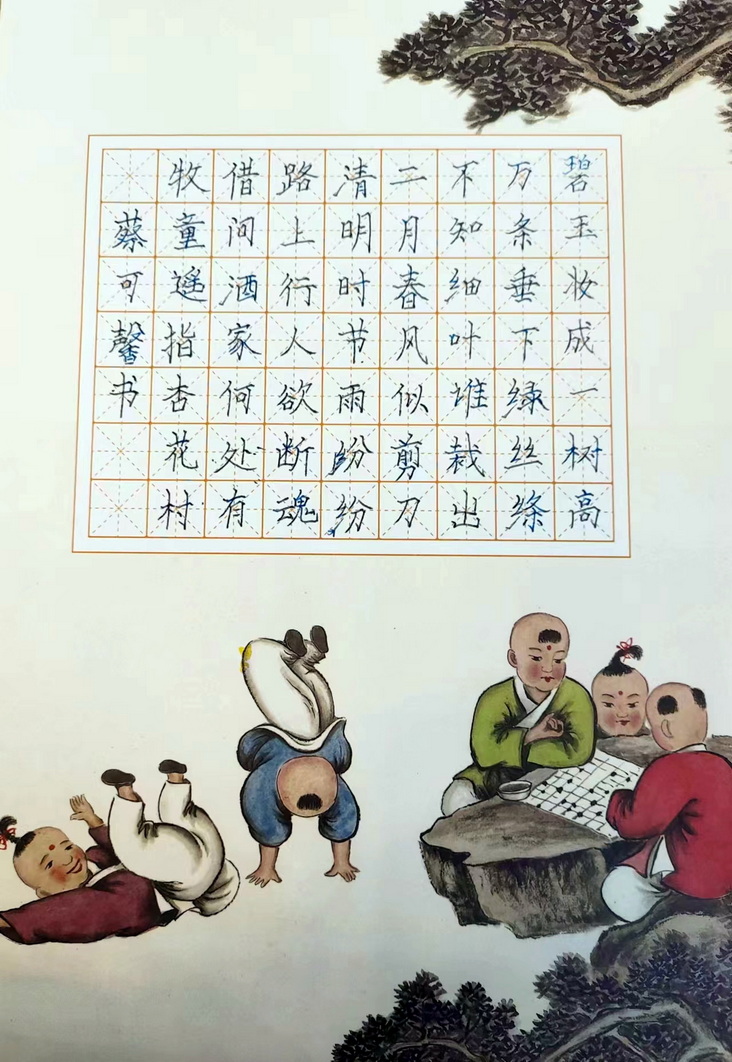 碧玉妆成一树高
万条垂下绿丝绦
不知细叶堆裁出
二月春风似剪刀
清明时节雨纷纷
路上行人欲断魂
借间酒家何处有
牧童遥指杏花村
蔡可馨书